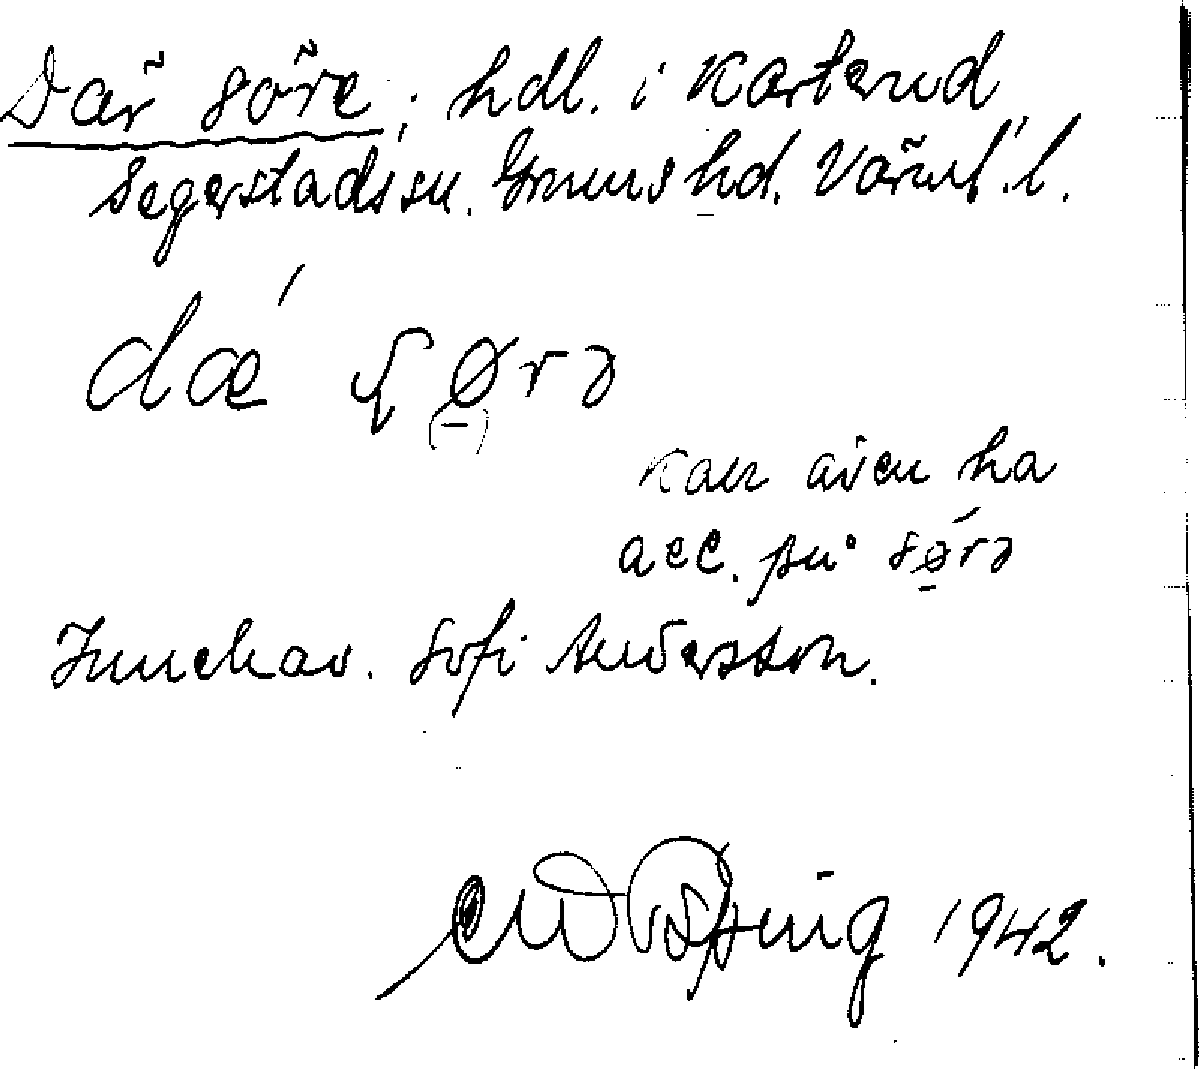 Där söre; hdl. i Karterud
Segerstads sn. Grums hd. Värml. l.
kan även ha
acc. på sørə
Innehav. Sofi Andersson.
1942.